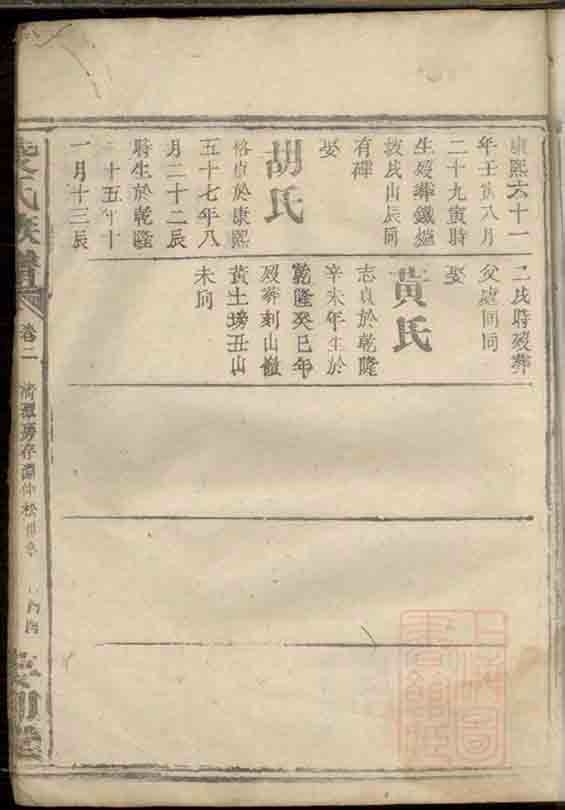 康熙六十一
年壬寅八月
二十九寅時
生歿葬鐵爐
坡戌山辰向
有碑
娶
胡氏
恪貞於康熙
五十七年八
月二十二辰
時生於乾隆
二十五年十
一月十三辰
二戌時歿葬
父處同向
娶
黃氏
志貞於乾隆
辛未年生於
乾隆癸巳年
歿葬刻山嶺
黃土塝丑山
未向
氏族譜
卷二
上海圖
書館藏